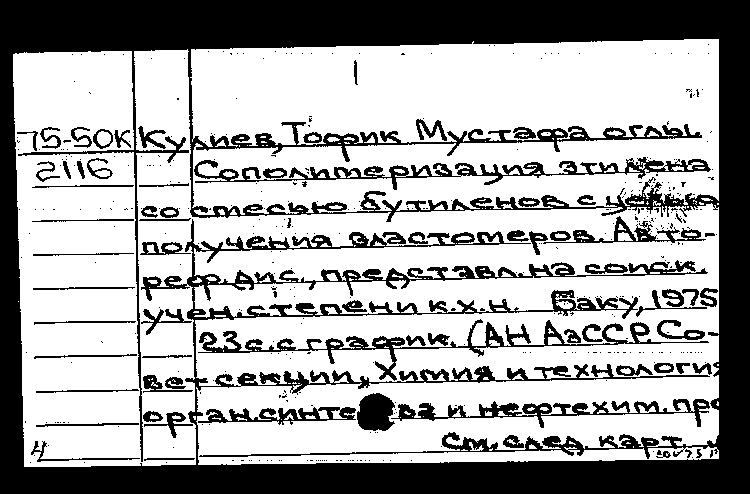 75-50К Кулиев, Тофик Мустафа оглы.
2116 Сополимеризация этилена
со смесью бутиленов с целью
получения эластомеров. Авто-
реф. дис., представл. на соиск.
учен. степени к.х.н. Баку, 1975
23 с. с график. (АН АзССР. Со-
вет секции „Химия и технология
орган. синтеза и нефтехим. про
4 см. след. карт.